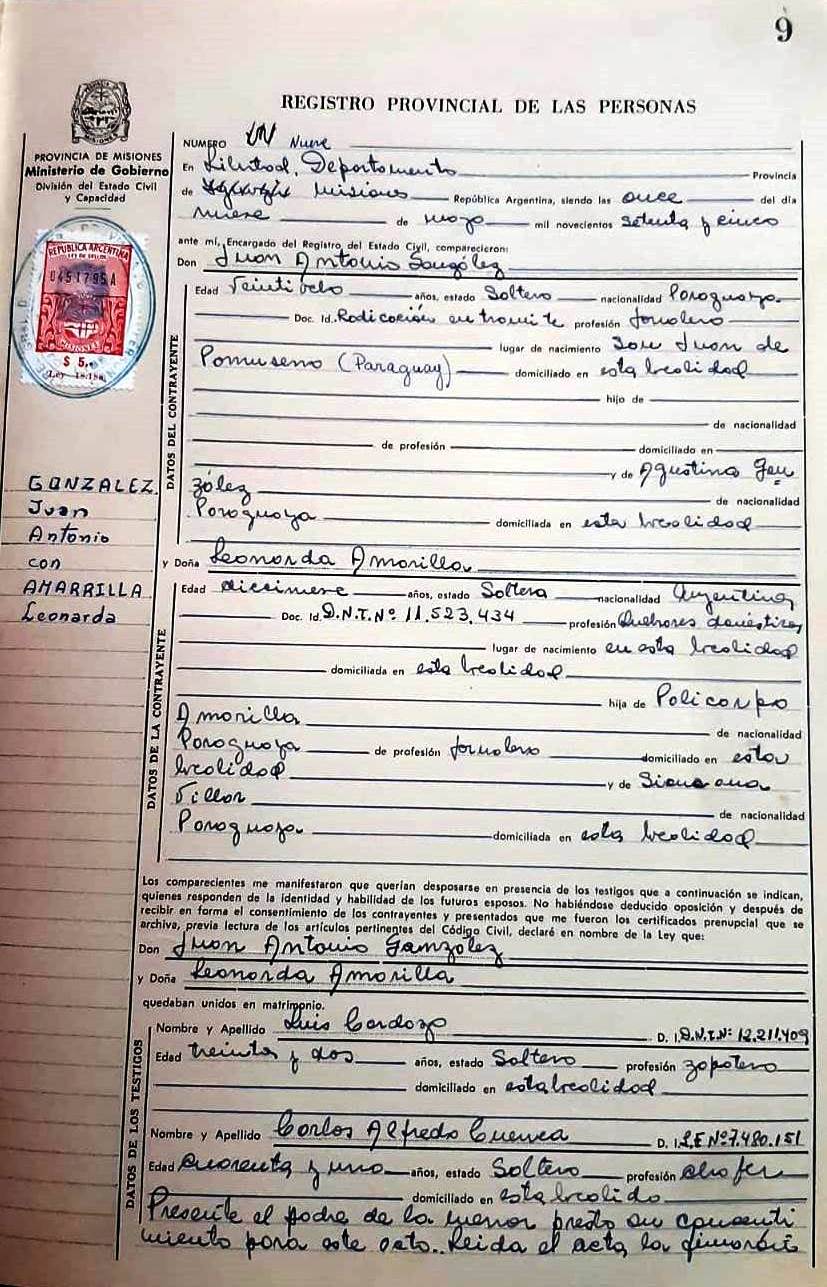 9
REGISTRO PROVINCIAL DE LAS PERSONAS
PROVINCIA DE MISIONES
Ministerio de Gobierno
División del Estado Civil
y Capacidad
REPUBLICA ARGENTINA
LEY DE SELLOS
0451795A
MISIONES
$ 5.-
Ley 18.188
GONZALEZ
Juan
Antonio
con
AMARRILLA
Leonarda
NUMERO Nueve
En Libertad, Departamento Provincia
de Misiones República Argentina, siendo las once del día
nueve de mayo mil novecientos setenta y cinco
ante mí, Encargado del Registro del Estado Civil, comparecieron:
Don Juan Antonio González
DATOS DEL CONTRAYENTE
Edad Veintiocho años, estado Soltero nacionalidad Paraguaya
Doc. Id. Radicación en tramite profesión Jornalero
lugar de nacimiento San Juan de
Pomuseno (Paraguay) domiciliado en esta localidad
hijo de
de nacionalidad
de profesión domiciliado en
y de Agustina Gon
zález de nacionalidad
Paraguaya domiciliada en esta localidad
y Doña Leonarda Amarilla
DATOS DE LA CONTRAYENTE
Edad diecinueve años, estado Soltera nacionalidad Argentina
Doc. Id. D.N.I. Nº 11.523.434 profesión Quehaceres domésticos
lugar de nacimiento en esta localidad
domiciliada en esta localidad
hija de Policarpo
Amarilla de nacionalidad
Paraguaya de profesión Jornalero domiciliado en esta
localidad y de
Villar de nacionalidad
Paraguaya domiciliada en esta localidad
Los comparecientes me manifestaron que querían desposarse en presencia de los testigos que a continuación se indican,
quienes responden de la identidad y habilidad de los futuros esposos. No habiéndose deducido oposición y después de
recibir en forma el consentimiento de los contrayentes y presentados que me fueron los certificados prenupcial que se
archiva, previa lectura de los artículos pertinentes del Código Civil, declaré en nombre de la Ley que:
Don Juan Antonio Gonzólez
y Doña Leonarda Amarilla
quedaban unidos en matrimonio.
DATOS DE LOS TESTIGOS
Nombre y Apellido Luis Cardozo D. I. D.N.I. Nº 12.211.409
Edad treinta y dos años, estado Soltero profesión zapatero
domiciliado en esta localidad
Nombre y Apellido Carlos Alfredo Cuenca D. I. L.E Nº 7.480.151
Edad cuarenta y uno años, estado Soltero profesión chofer
domiciliado en esta localida
Presente el padre de la menor presto su consenti
miento para este acto.. Leida el acta la